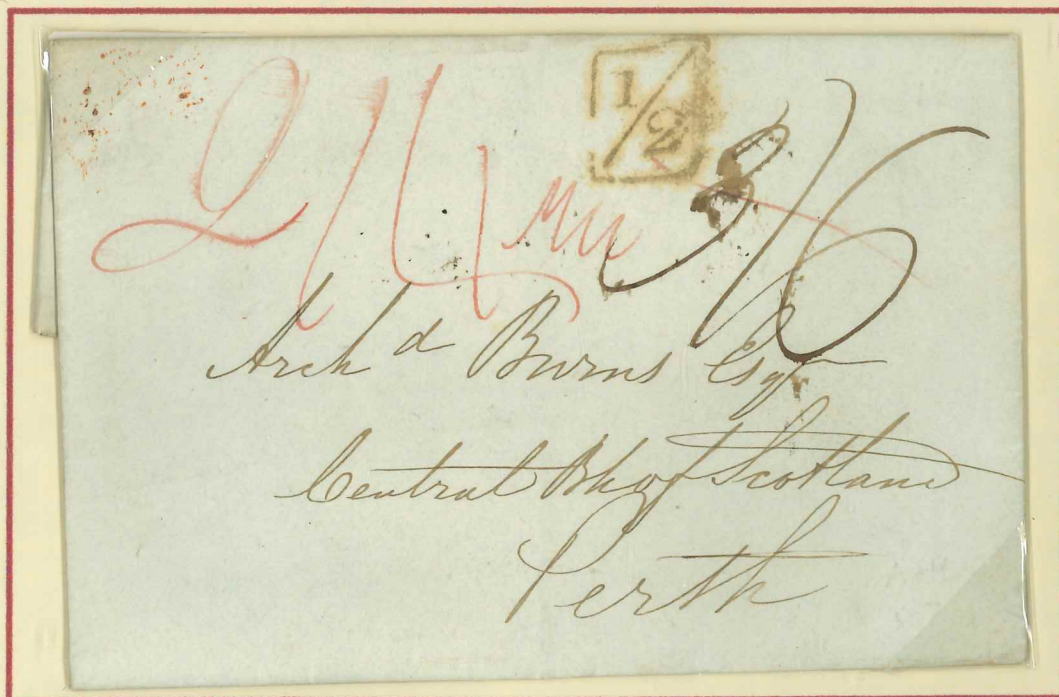 1/2
3/6
Archd Burns Esqr
Central Bk of Scotland
Perth